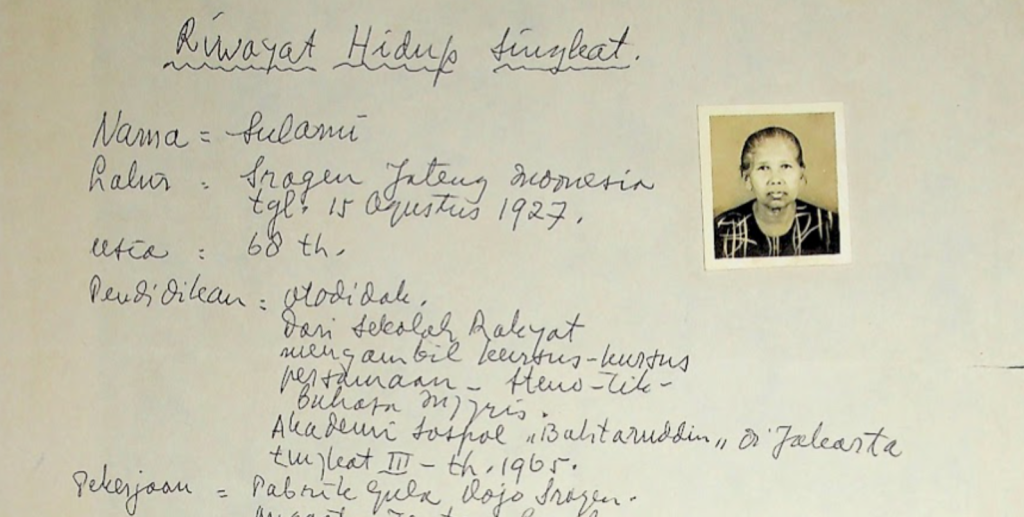 Riwayat Hidup Singkat.
Nama = Sulami
Lahir : Sragen Jateng Indonesia
tgl. 15 Agustus 1927.
Usia : 68 th.
Pendidikan : Otodidak.
Dari Sekolah Rakyat
mengambil kursus-kursus
persamaan - Steno-Tik-
Bahasa Inggris.
Akademi Sospol "Bahtaruddin" di Jakarta
tingkat III - th. 1965.
Pekerjaan = Pabrik Gula Mojo Sragen.